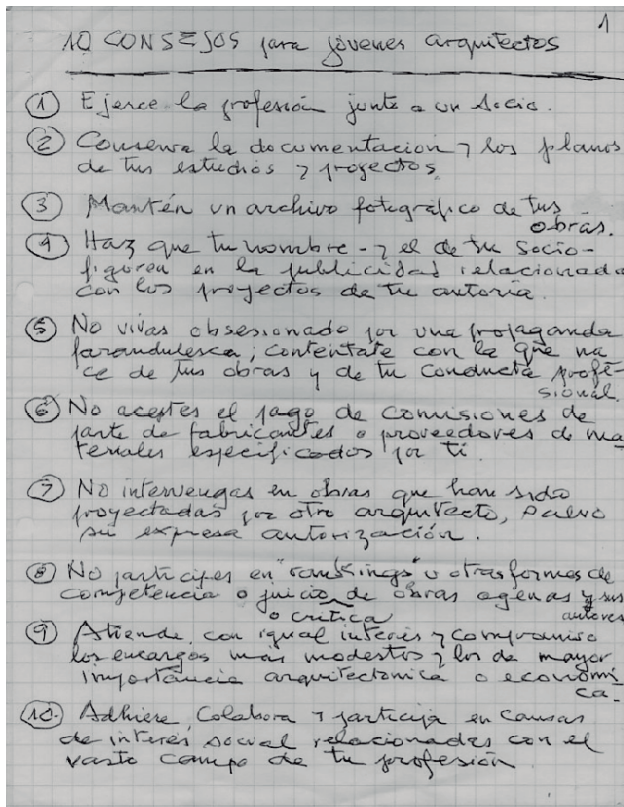 1
10 CONSEJOS para jóvenes arquitectos
1 Ejerce la profesión junto a un socio.
2 Conserva la documentación y los planos
de tus estudios y proyectos.
3 Mantén un archivo fotográfico de tus
obras.
4 Haz que tu nombre - y el de tu socio -
figuren en la publicidad relacionada
con los proyectos de tu autoría.
5 No vivas obsesionado por una propaganda
farandulesca; conténtate con la que na
ce de tus obras y de tu conducta profe-
sional.
6 No aceptes el pago de comisiones de
parte de fabricantes o proveedores de ma
teriales especificados por ti.
7 No intervengas en obras que han sido
proyectadas por otro arquitecto, salvo
su expresa autorización.
8 No participes en "rankings" u otras formas de
competencia o juicio de obras agenas y sus
o crítica autores
9 Atiende con igual interés y compromiso
los encargos más modestos y los de mayor
importancia arquitectónica o económi
ca.
10. Adhiere, colabora y participa en causas
de interés social relacionadas con el
vasto campo de tu profesión.